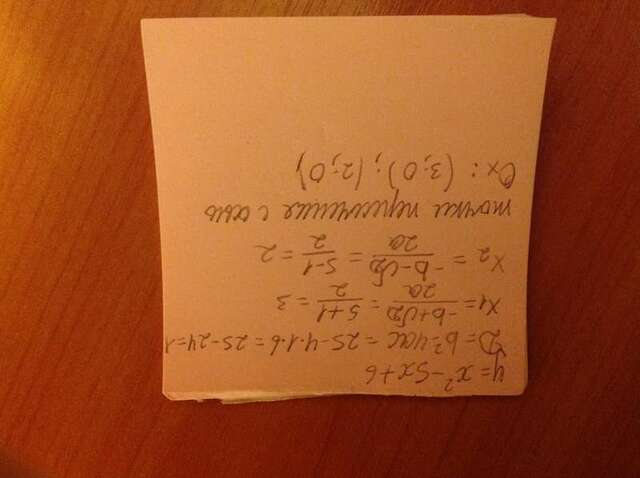 y = x² - 5x + 6
D = b² - 4ac = 25 - 4·1·6 = 25 - 24 = 1
x₁ = (-b + √D)/2a = (5 + 1)/2 = 3
x₂ = (-b - √D)/2a = (5 - 1)/2 = 2
точки пересечения с осью
Ox: (3; 0); (2; 0),